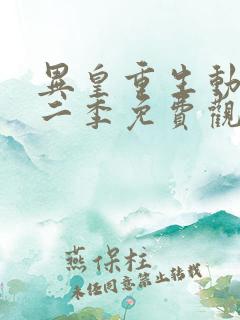 異皇重生動
二季免費觀
燕保柱
未经同意禁止转载